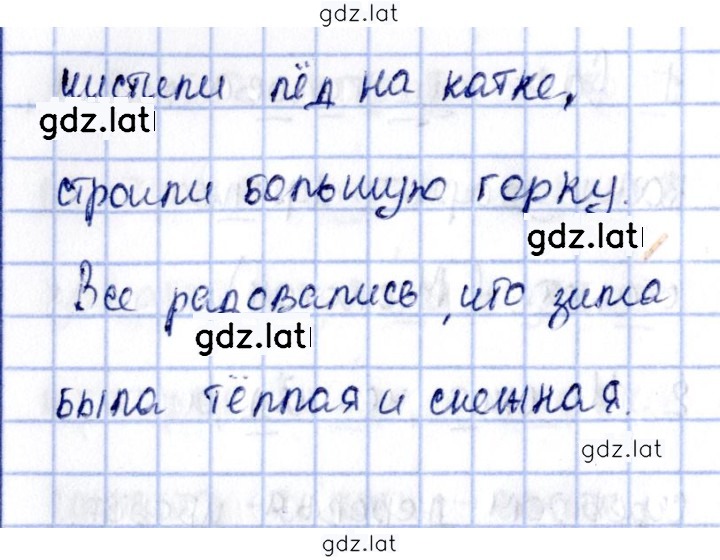 gdz.lat
чистили лёд на катке,
gdz.lat
строили большую горку.
gdz.lat
Все радовались, что зима
gdz.lat
была тёплая и снежная.
gdz.lat
gdz.lat